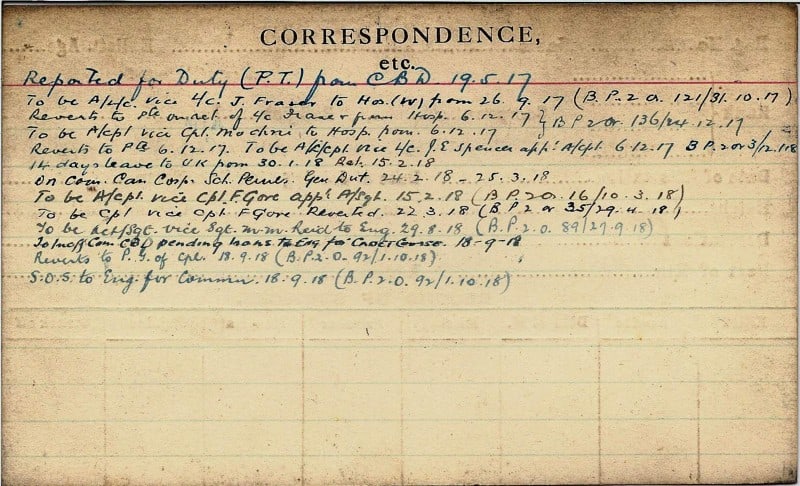 CORRESPONDENCE,
etc.
Reported for Duty (P.T.) from C B D. 19.5.17
To be A/L/c. vice L/c. J. Fraser to Hos.(W) from 26.9.17 (B.P.2 O. 121/31.10.17)
Reverts to Pte on ret. of L/c Fraser from Hosp. 6.12.17 } B P 2 Or. 136/24.12.17
To be A/cpl vice Cpl. to Hosp. from. 6.12.17
Reverts to Pte 6.12.17. To be A/L/cpl. vice L/c. J.E Spencer app. A/cpl 6.12.17 B P.2 or 3/12.1.18
14 days leave to U.K from 30.1.18 Ret. 15.2.18
On Com. Can Corps. Sch. Gen Dut. 24.2.18 - 25.3.18
To be A/cpl. vice Cpl F. Gore app. A/Sgt. 15.2.18 (B.P.2 O. 16/10.3.18)
To be Cpl vice Cpl. F Gore Reverted. 22.3.18 (B.P.2 or 35/29.4.18)
To be Act/Sgt. vice Sgt. M.M. Reid to Eng. 29.8.18 (B.P.2.O. 89/27.9.18)
Com CBD pending trans to Eng for Cadet Course. 18-9-18
Reverts to P.G. of Cpl. 18.9.18 (B.P.2.O. 92/1.10.18)
S.O.S. to Eng. for Commn. 18.9.18 (B.P.2.O. 92/1.10.18)